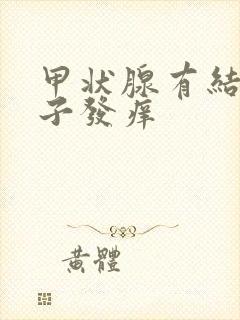 甲状腺有結
子發痒
黃體